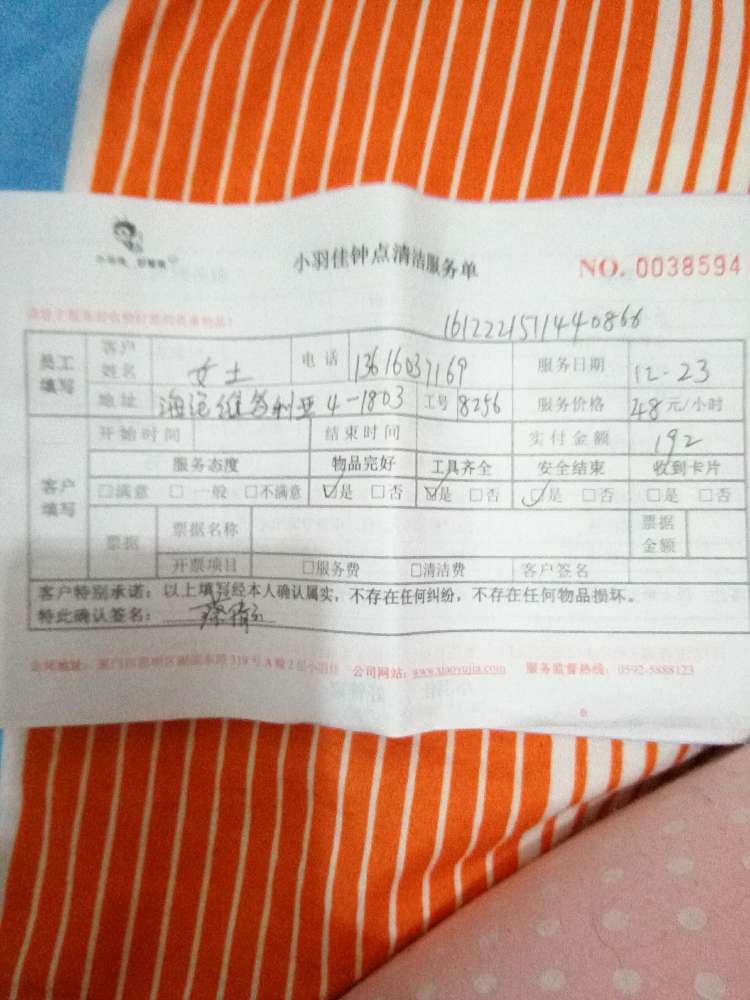 小羽佳钟点清洁服务单
NO. 0038594
1612221511440866
员工填写 客户姓名 女士 电话 13616037169 服务日期 12-23
地址 4-1803 工号 8256 服务价格 48元/小时
客户填写 开始时间 结束时间 实付金额 192
服务态度 物品完好 工具齐全 安全结束 收到卡片
□满意 □一般 □不满意 ☑是 □否 ☑是 □否 ☑是 □否 □是 □否
票据 票据名称 票据金额
开票项目 □服务费 □清洁费 客户签名
客户特别承诺：以上填写经本人确认属实，不存在任何纠纷，不存在任何物品损坏。
特此确认签名：
公司地址：厦门市思明区湖滨东路319号A幢2层小羽佳 公司网站：www.xiaoyujia.com 服务监督热线：0592-5888123